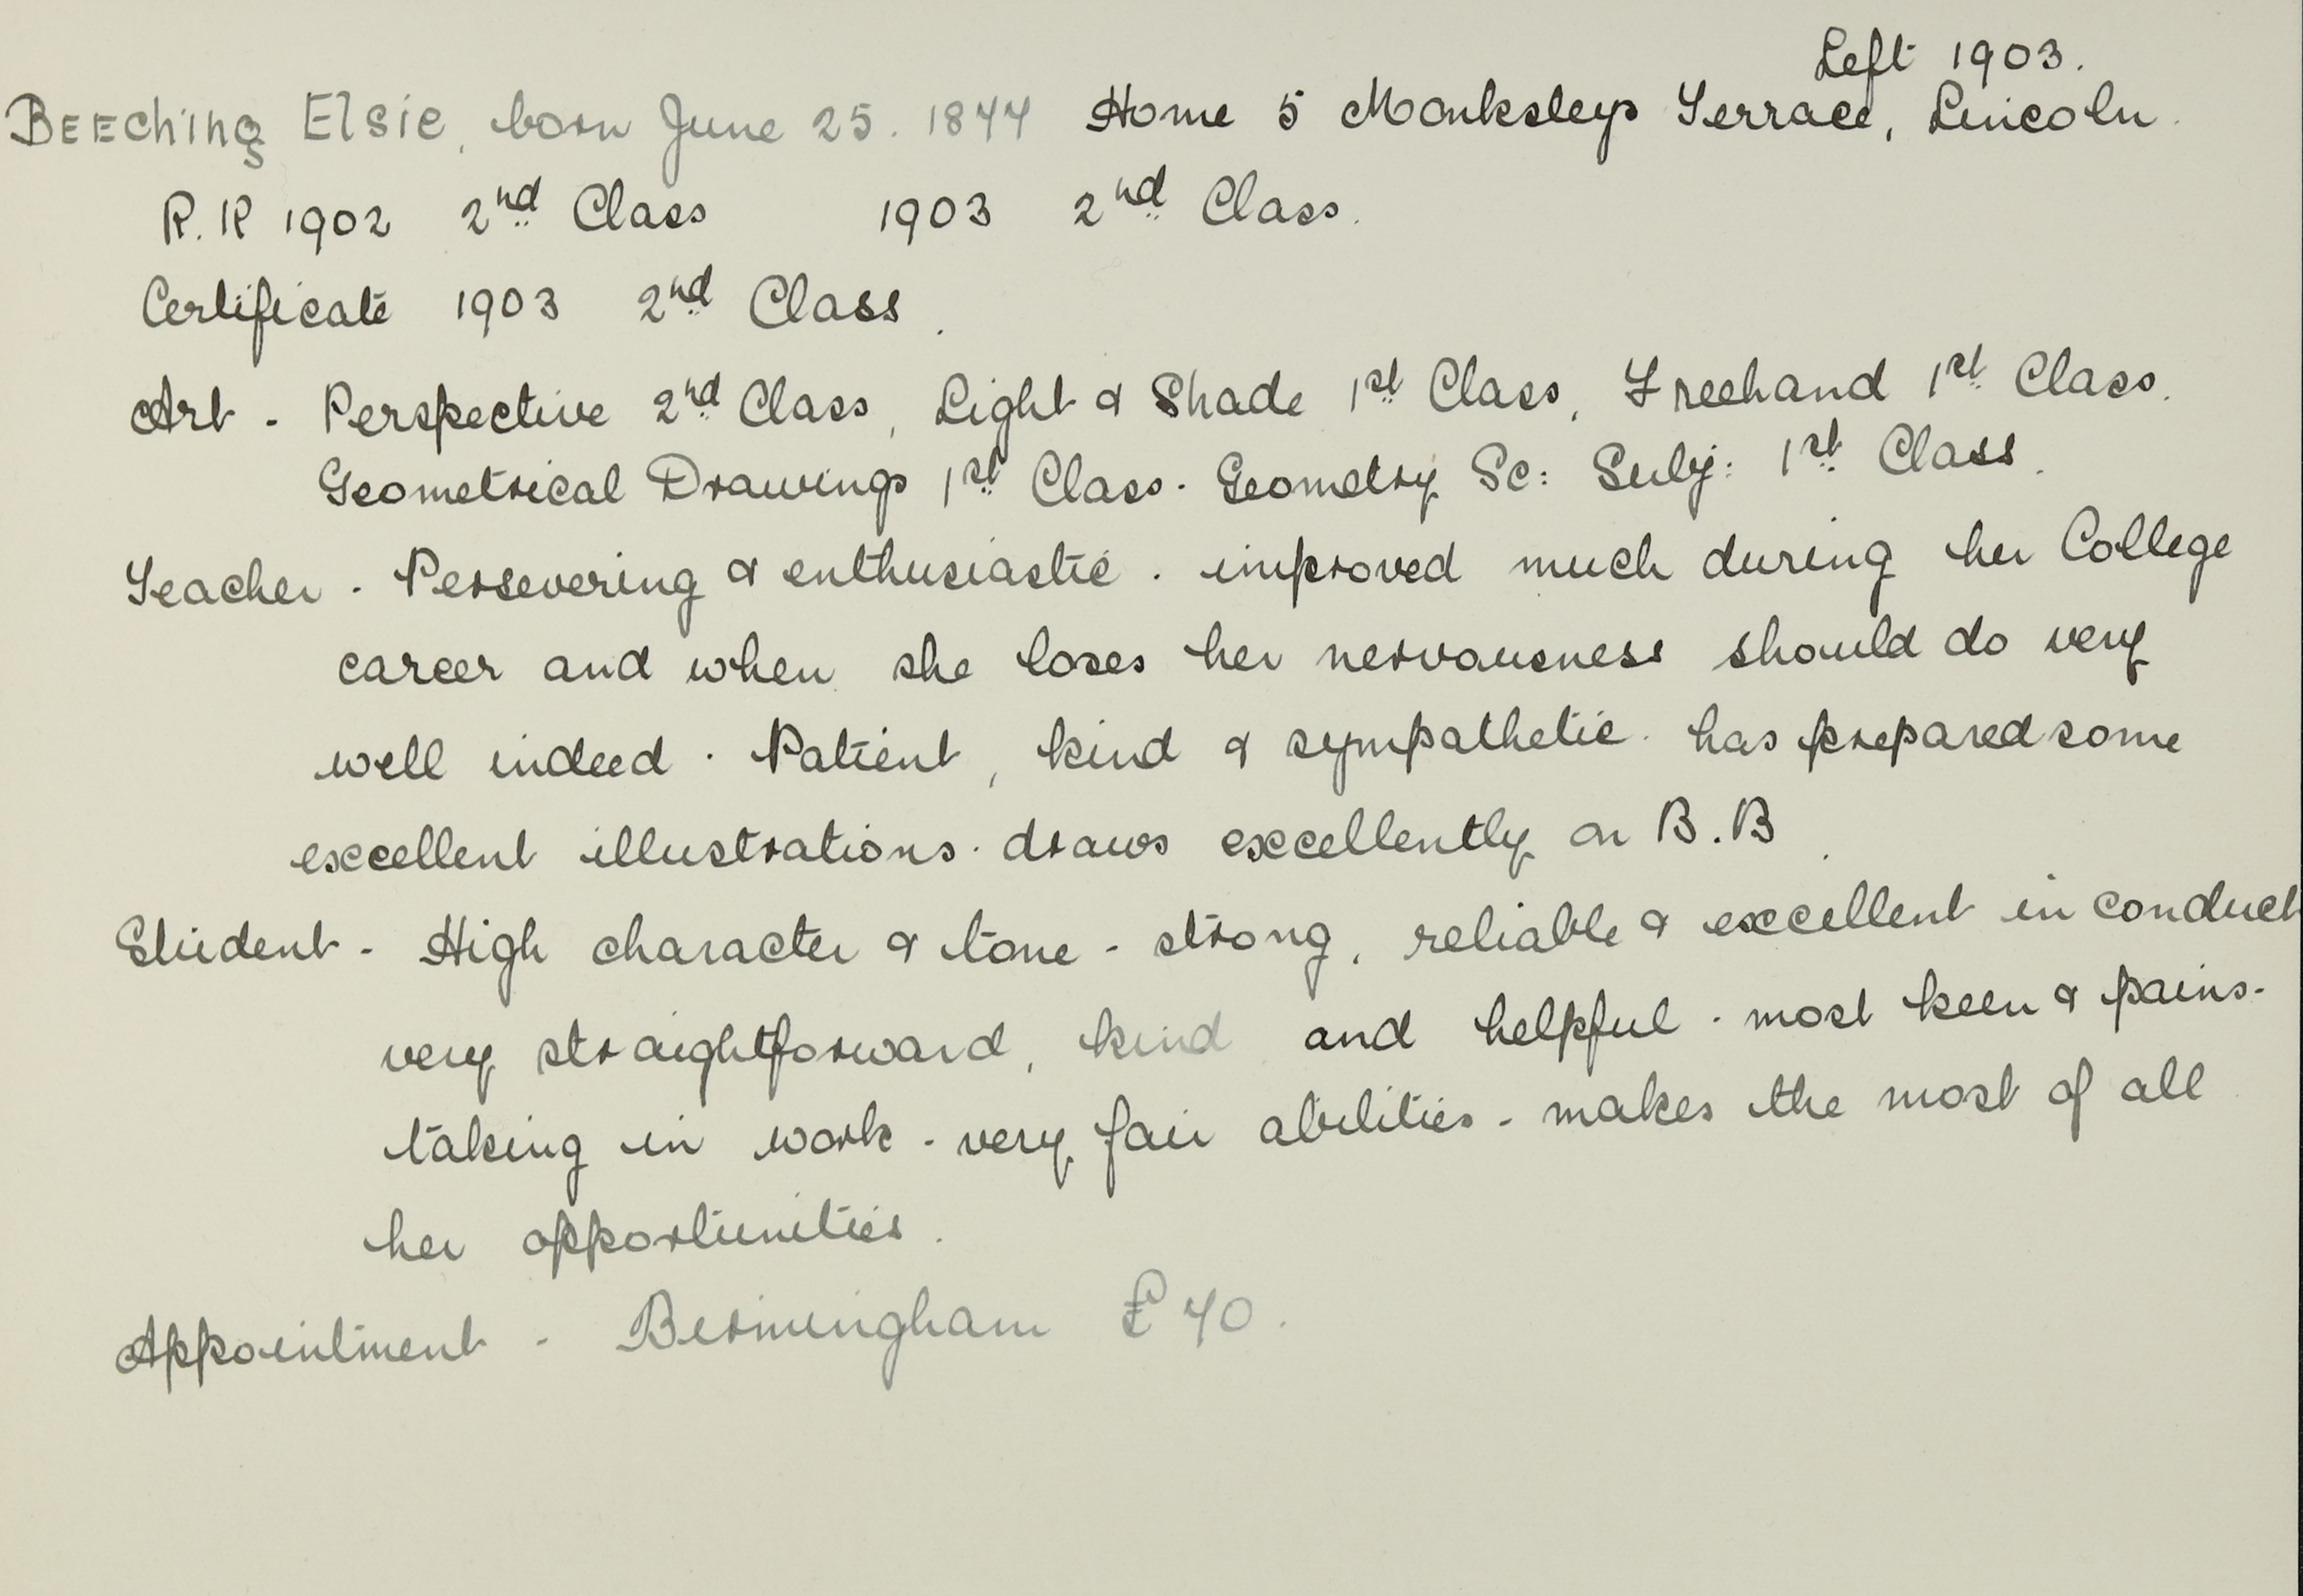 Left 1903.
BEECHING Elsie, born June 25. 1844 Home 5 Monksleys Terrace, Lincoln.
R.K 1902 2nd Class 1903 2nd Class.
Certificate 1903 2nd Class.
Art - Perspective 2nd Class, Light & Shade 1st Class, Freehand 1st Class.
Geometrical Drawings 1st Class. Geometry Sc: Subj: 1st Class.
Teacher. Persevering & enthusiastic. improved much during her College
career and when she loses her nervousness should do very
well indeed. Patient, kind & sympathetic. has prepared some
excellent illustrations. draws excellently on B.B.
Student - High character & tone - strong, reliable & excellent in conduct
very straightforward, kind and helpful. most keen & pains-
taking in work. very fair abilities - makes the most of all
her opportunities.
Appointment - Birmingham £40.